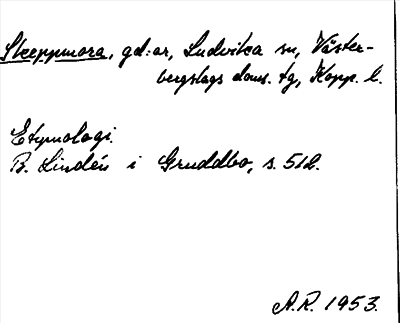 Skeppmora, gd:ar, Ludvika sn, Väster-
bergslags doms. tg, Kopp. l.
Etymologi.
B. Lindén i Gruddbo, s. 51f.
A.R. 1953.